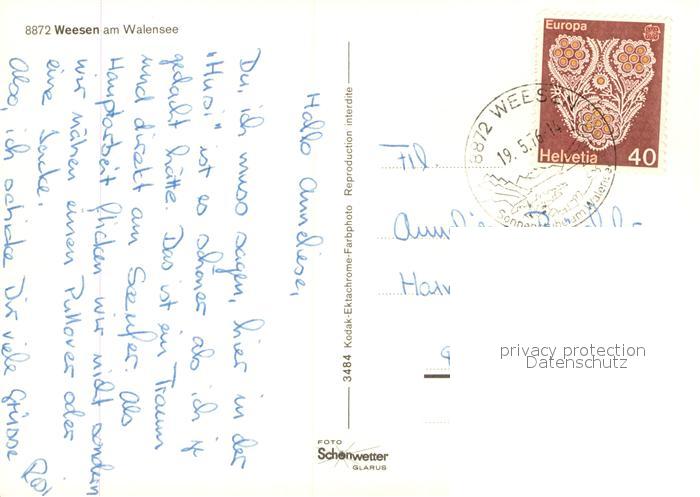 8872 Weesen am Walensee
Hallo Anneliese,
Du, ich muss sagen, hier in der
"Husi" ist es schöner als ich je
gedacht hätte. Das ist ein Traum
und direkt am Seeufer. Als
Hauptarbeit flicken wir nicht sondern
wir nähen einen Pullover oder
eine Jacke.
Also, ich schicke Dir viele Grüsse
3484 Kodak-Ektachrome-Farbphoto Reproduction interdite
FOTO
Schönwetter
GLARUS
Europa
Helvetia 40
8872 WEESEN
19.5.76-14
Frl.
privacy protection
Datenschutz